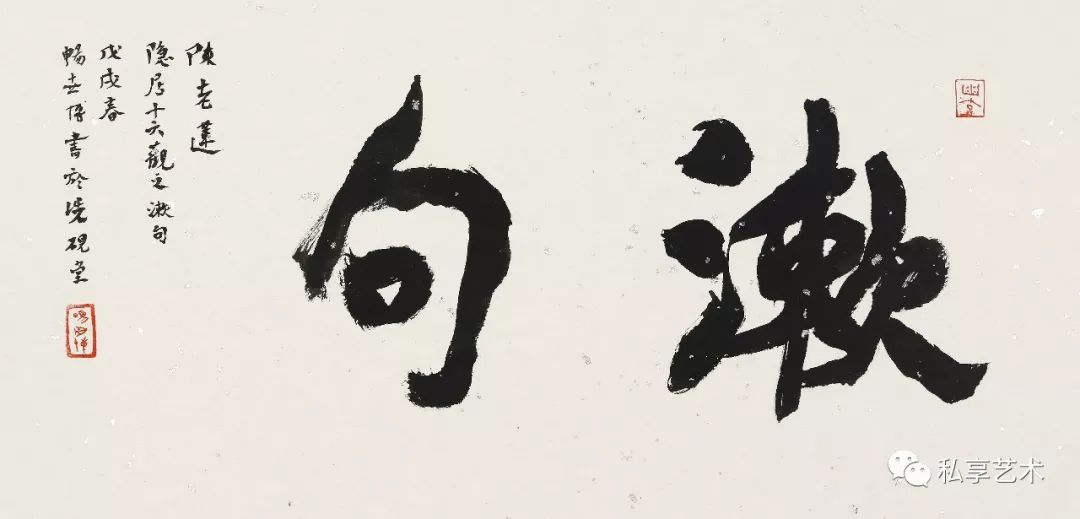 漱句
陳老蓮
隱居十六觀之漱句
戊戌春
暢世博書於洗硯堂
私享艺术